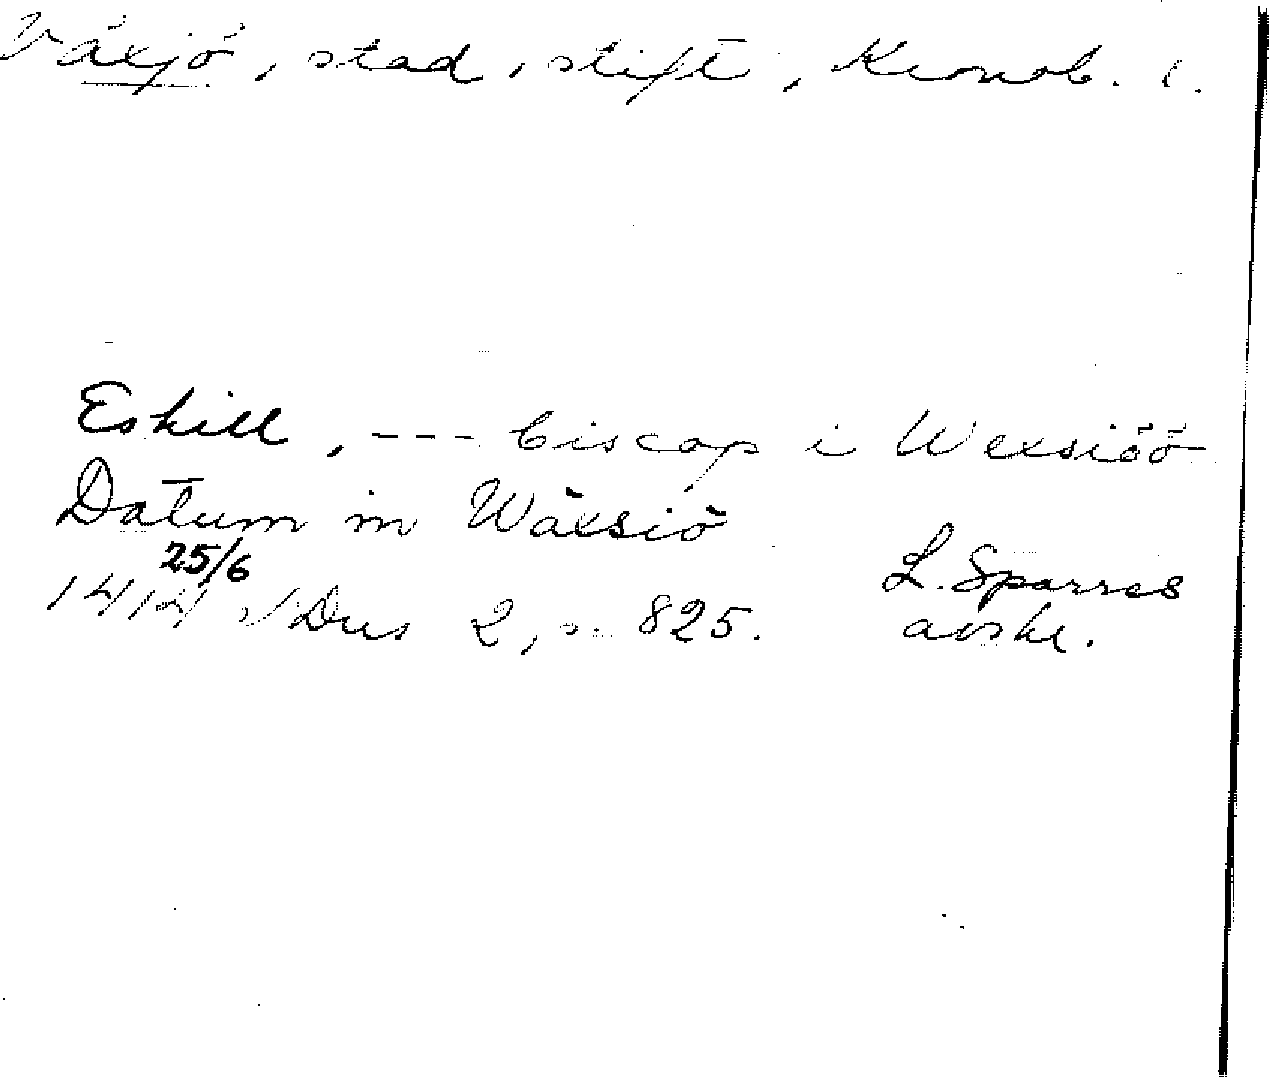 Växjö, stad, stift, Kronob. l.
Eskill, --- biscop i Wexsiöö
Datum in Wäxsiö
25/6
1414 Dus 2, s. 825.
L. Sparres
avskr.